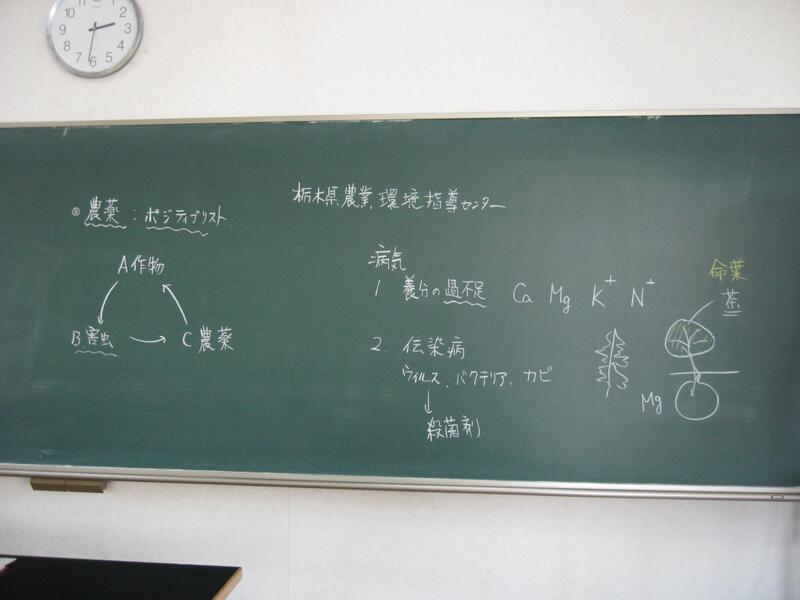 12
1
2
3
4
5
6
7
8
9
10
栃木県農業環境指導センター
◎農薬：ポジティブリスト
A作物
B害虫 → C農薬
病気
1. 養分の過不足 Ca Mg K⁺ N⁺
命葉
茶
2. 伝染病
ウイルス、バクテリア、カビ
↓
殺菌剤
Mg